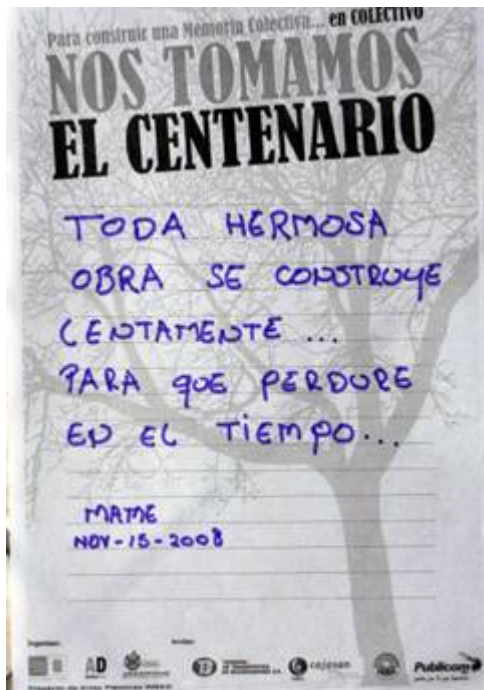 Para construir una Memoria Colectiva... en COLECTIVO
NOS TOMAMOS
EL CENTENARIO
TODA HERMOSA
OBRA SE CONSTRUYE
LENTAMENTE ...
PARA QUE PERDURE
EN EL TIEMPO...
MAME
NOV-15-2008
AD
cajasan
Publicom